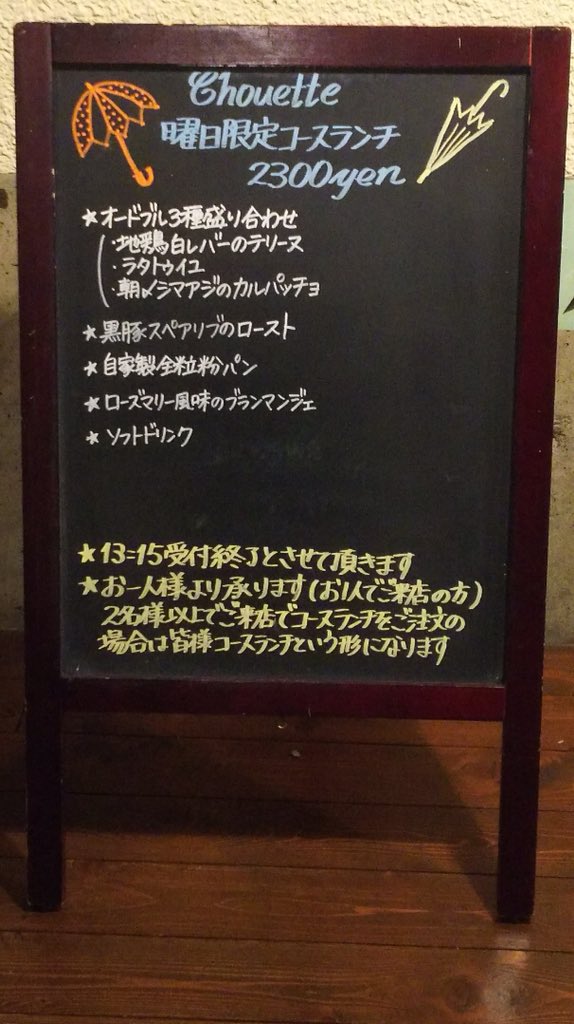 Chouette
曜日限定コースランチ
2300yen
★オードブル3種盛り合わせ
・地鶏白レバーのテリーヌ
・ラタトゥイユ
・朝〆シマアジのカルパッチョ
★黒豚スペアリブのロースト
★自家製全粒粉パン
★ローズマリー風味のブランマンジェ
★ソフトドリンク
★13=15受付終了とさせて頂きます
★お一人様より承ります(お1人でご来店の方)
2名様以上でご来店でコースランチをご注文の
場合は皆様コースランチという形になります